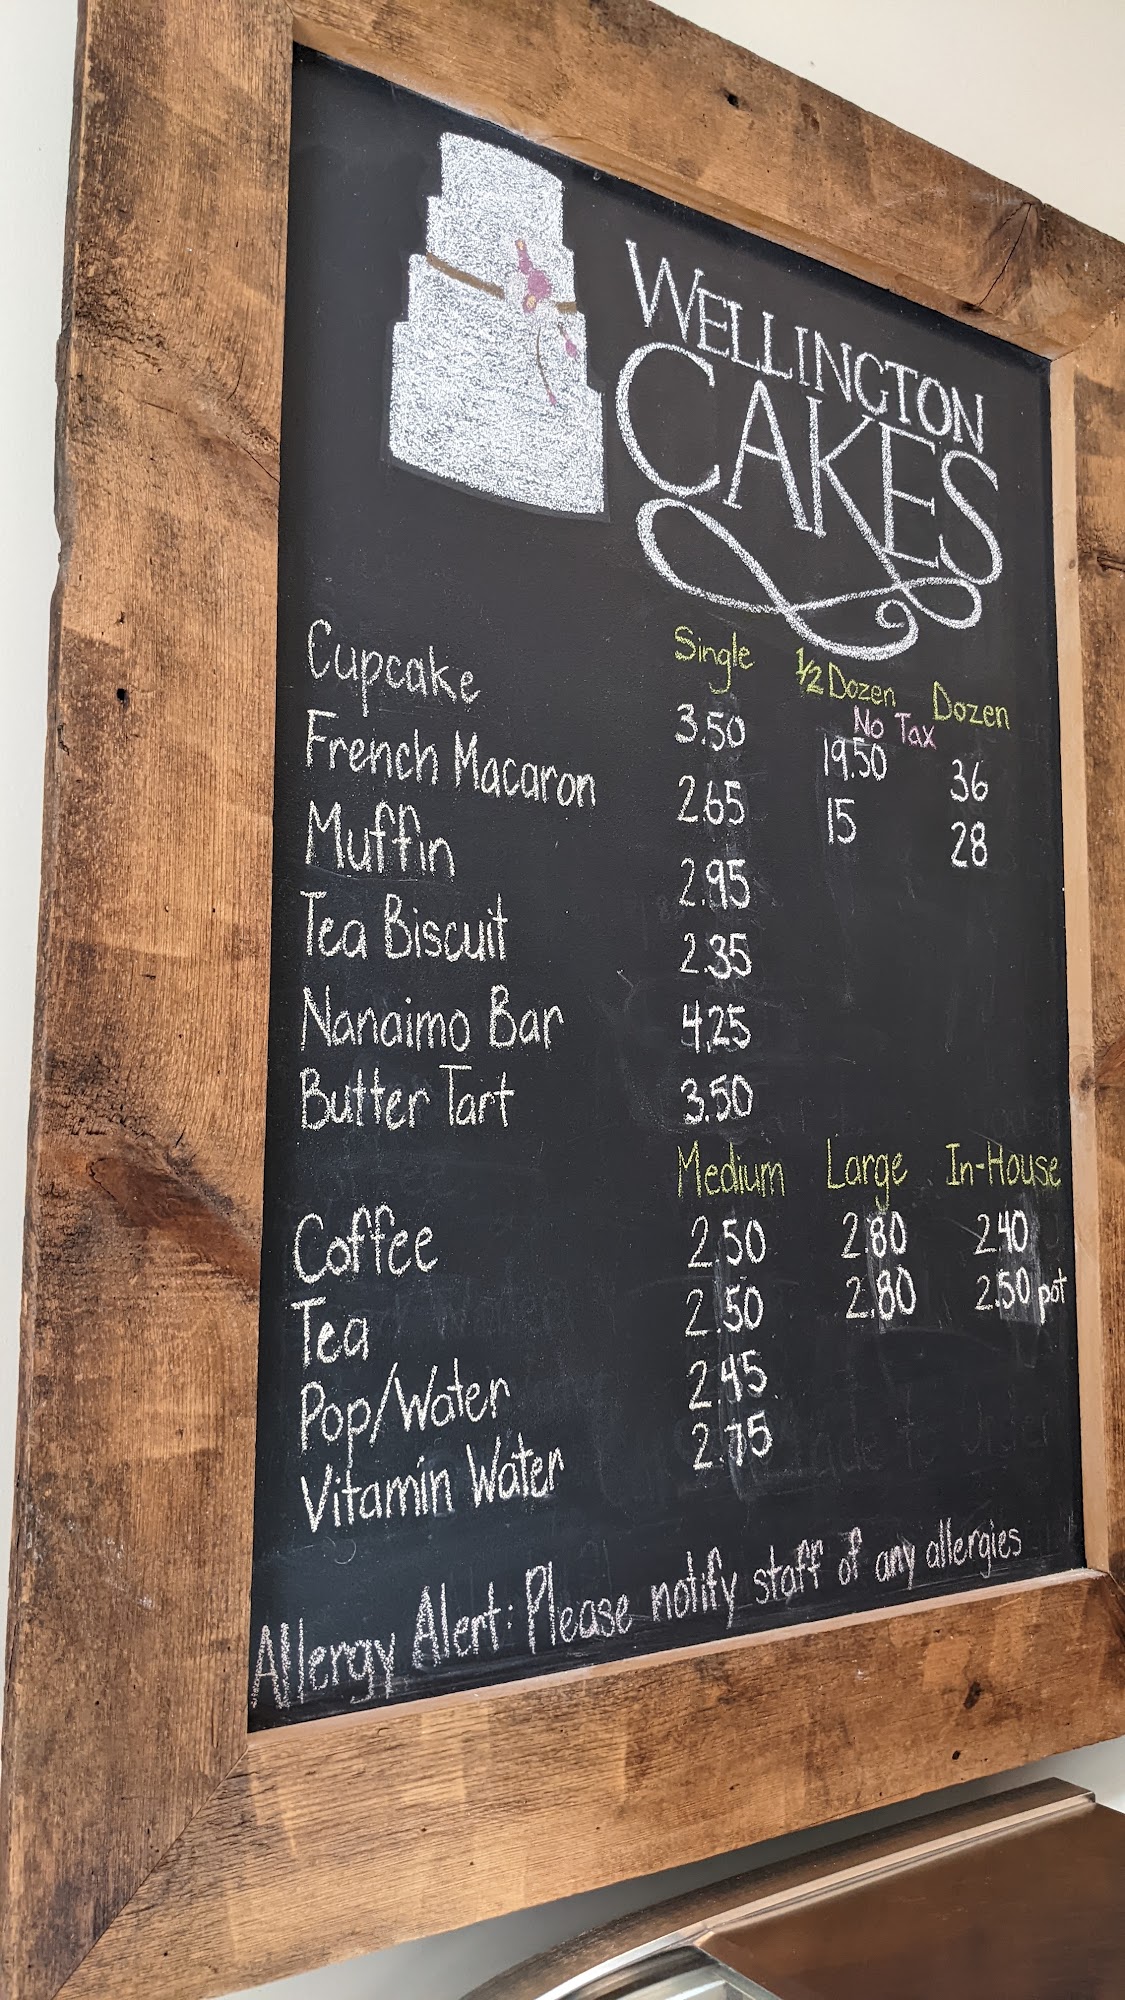 WELLINGTON
CAKES
Single ½ Dozen Dozen
No Tax
Cupcake 3.50 19.50 36
French Macaron 2.65 15 28
Muffin 2.95
Tea Biscuit 2.35
Nanaimo Bar 4.25
Butter Tart 3.50
Medium Large In-House
Coffee 2.50 2.80 2.40
Tea 2.50 2.80 2.50 pot
Pop/Water 2.45
Vitamin Water 2.75
Allergy Alert: Please notify staff of any allergies